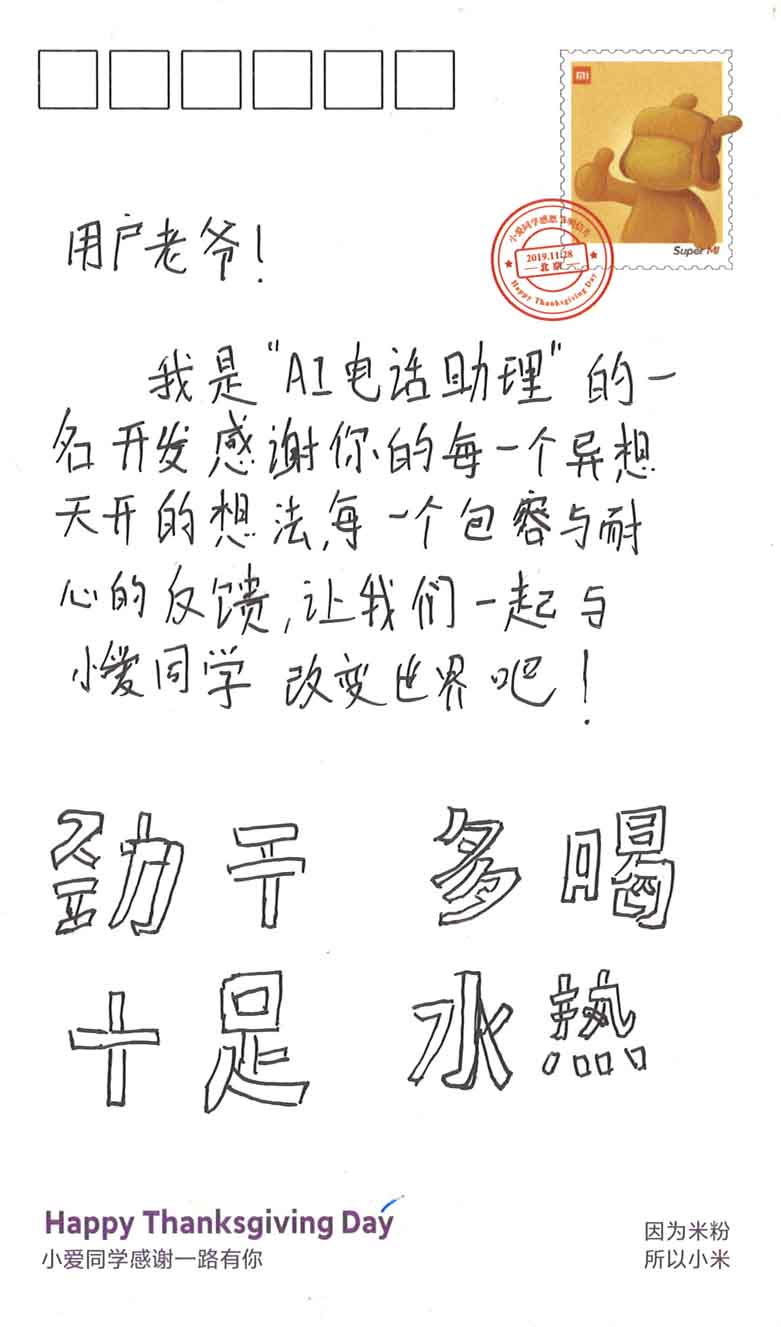 MI
Super MI
小爱同学感恩
2019.11.28
北京
Happy Thanksgiving Day
用户老爷！
我是“AI电话助理”的一
名开发感谢你的每一个异想
天开的想法,每一个包容与耐
心的反馈,让我们一起与
小爱同学 改变世界吧！
劲干 多喝
十足 水热
Happy Thanksgiving Day
小爱同学感谢一路有你
因为米粉
所以小米